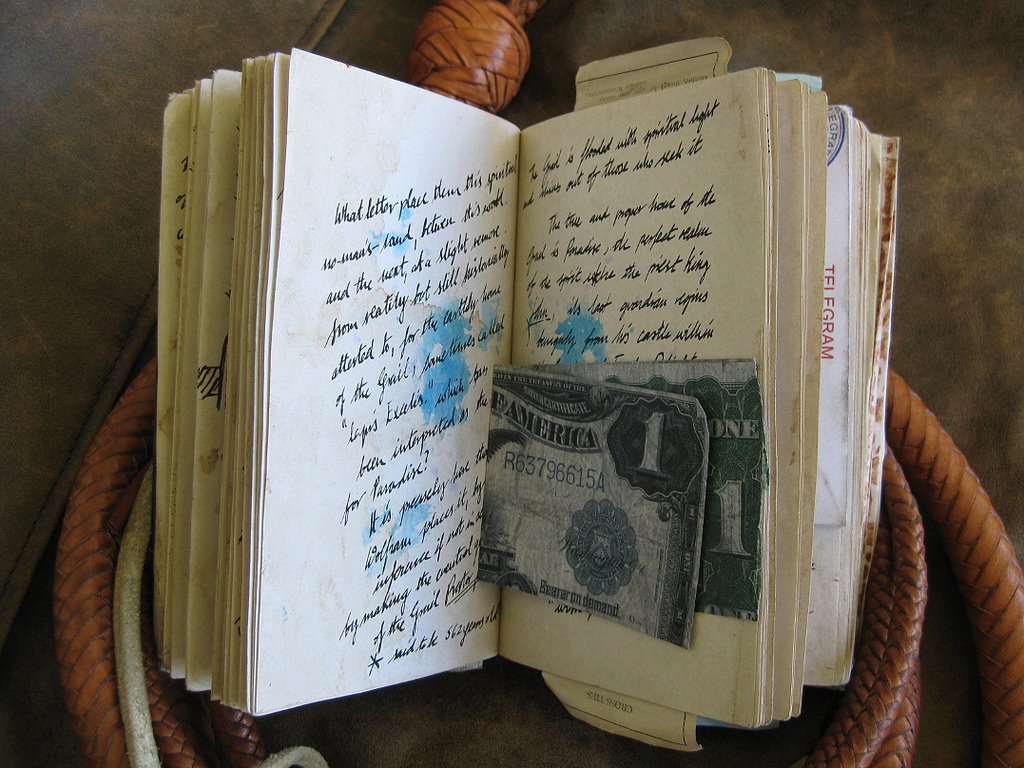 What letter place them this spiritual
no-man's-land, between this world.
and the next, at a slight remove
from reatity but still historically
attested to, for the earthly home
of the Grail, sometimes called
"Lapis Exalis" which has
been interpreted as the
for Paradise?
It is precisely here that
Wolfram places it, by
inference if not in
by making the central
of the Grail
* said to be 562 years old
The Grail is flooded with spiritual light
and shines out of those who seek it
The true and proper home of the
Grail is Paradise, the perfect realm
of the spirit where the priest king
John, its last guardian reigns
benignly from his castle within
IN THE TREASURY OF THE
CERTIFICATE
F AMERICA
1
R63796615A
Bearer on demand
ONE
1
ONE
TELEGRAM
CROSS TIES